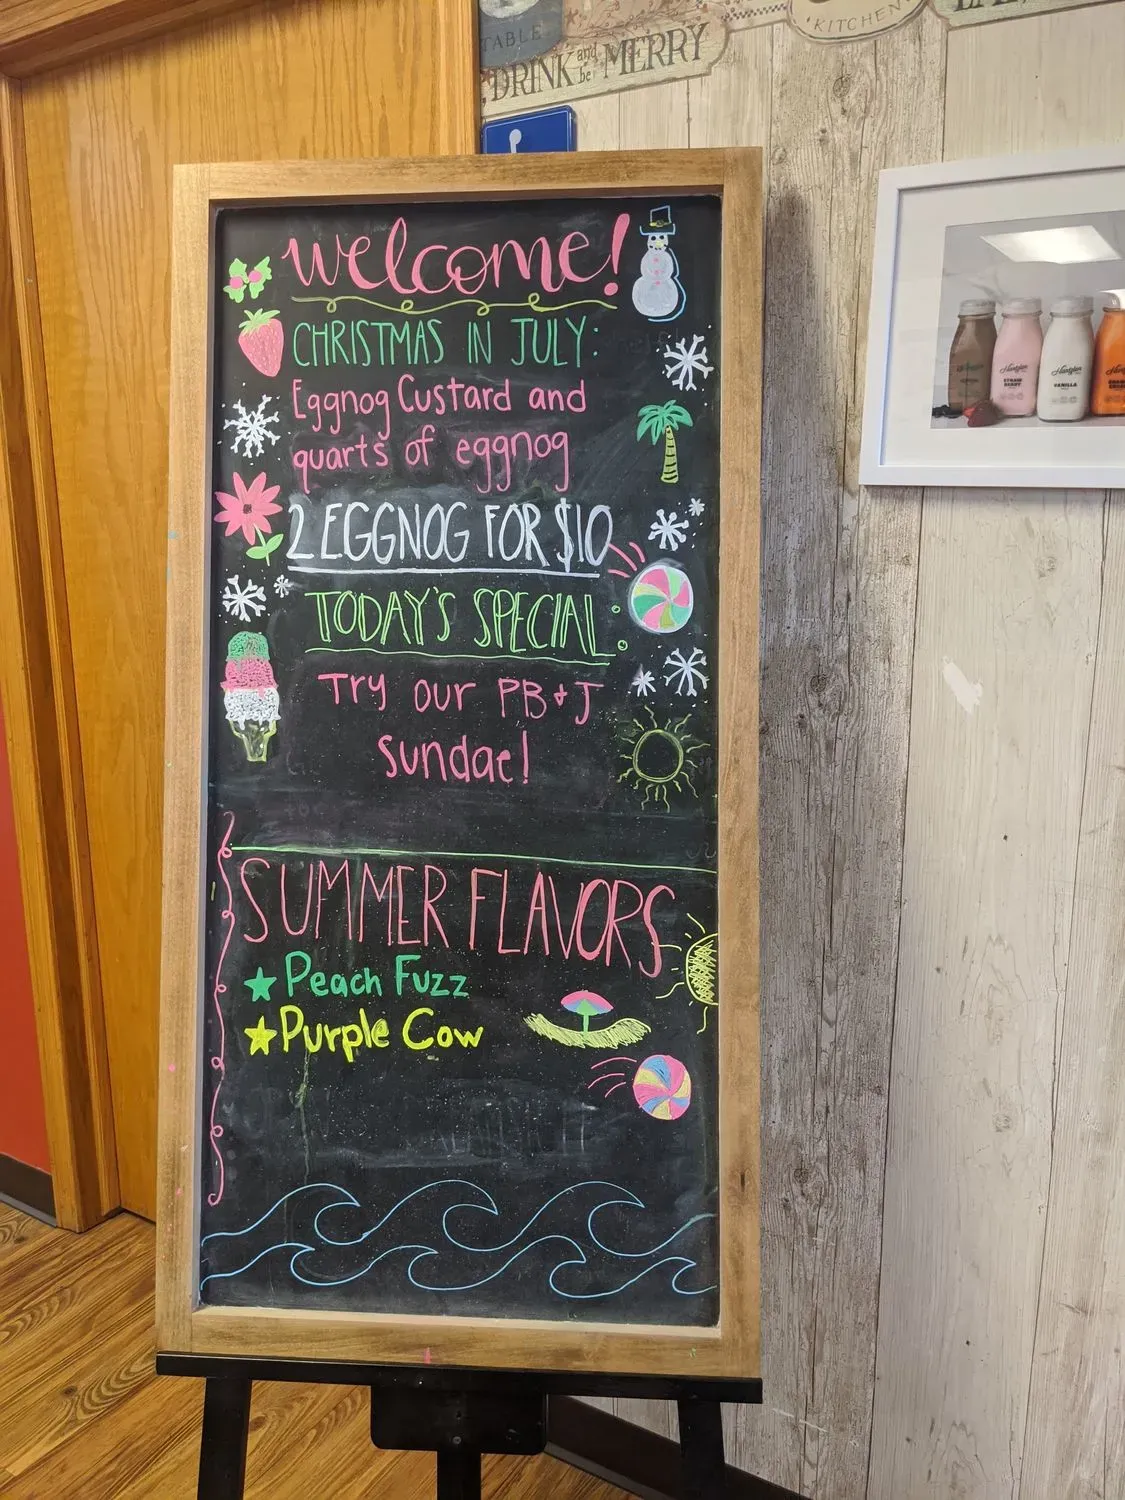 TABLE
DRINK and be MERRY
KITCHEN
welcome!
CHRISTMAS IN JULY:
Eggnog Custard and
quarts of eggnog
2 EGGNOG FOR $10
TODAY'S SPECIAL:
Try our PB+J
Sundae!
SUMMER FLAVORS
Peach Fuzz
Purple Cow
STRAWBERRY
VANILLA